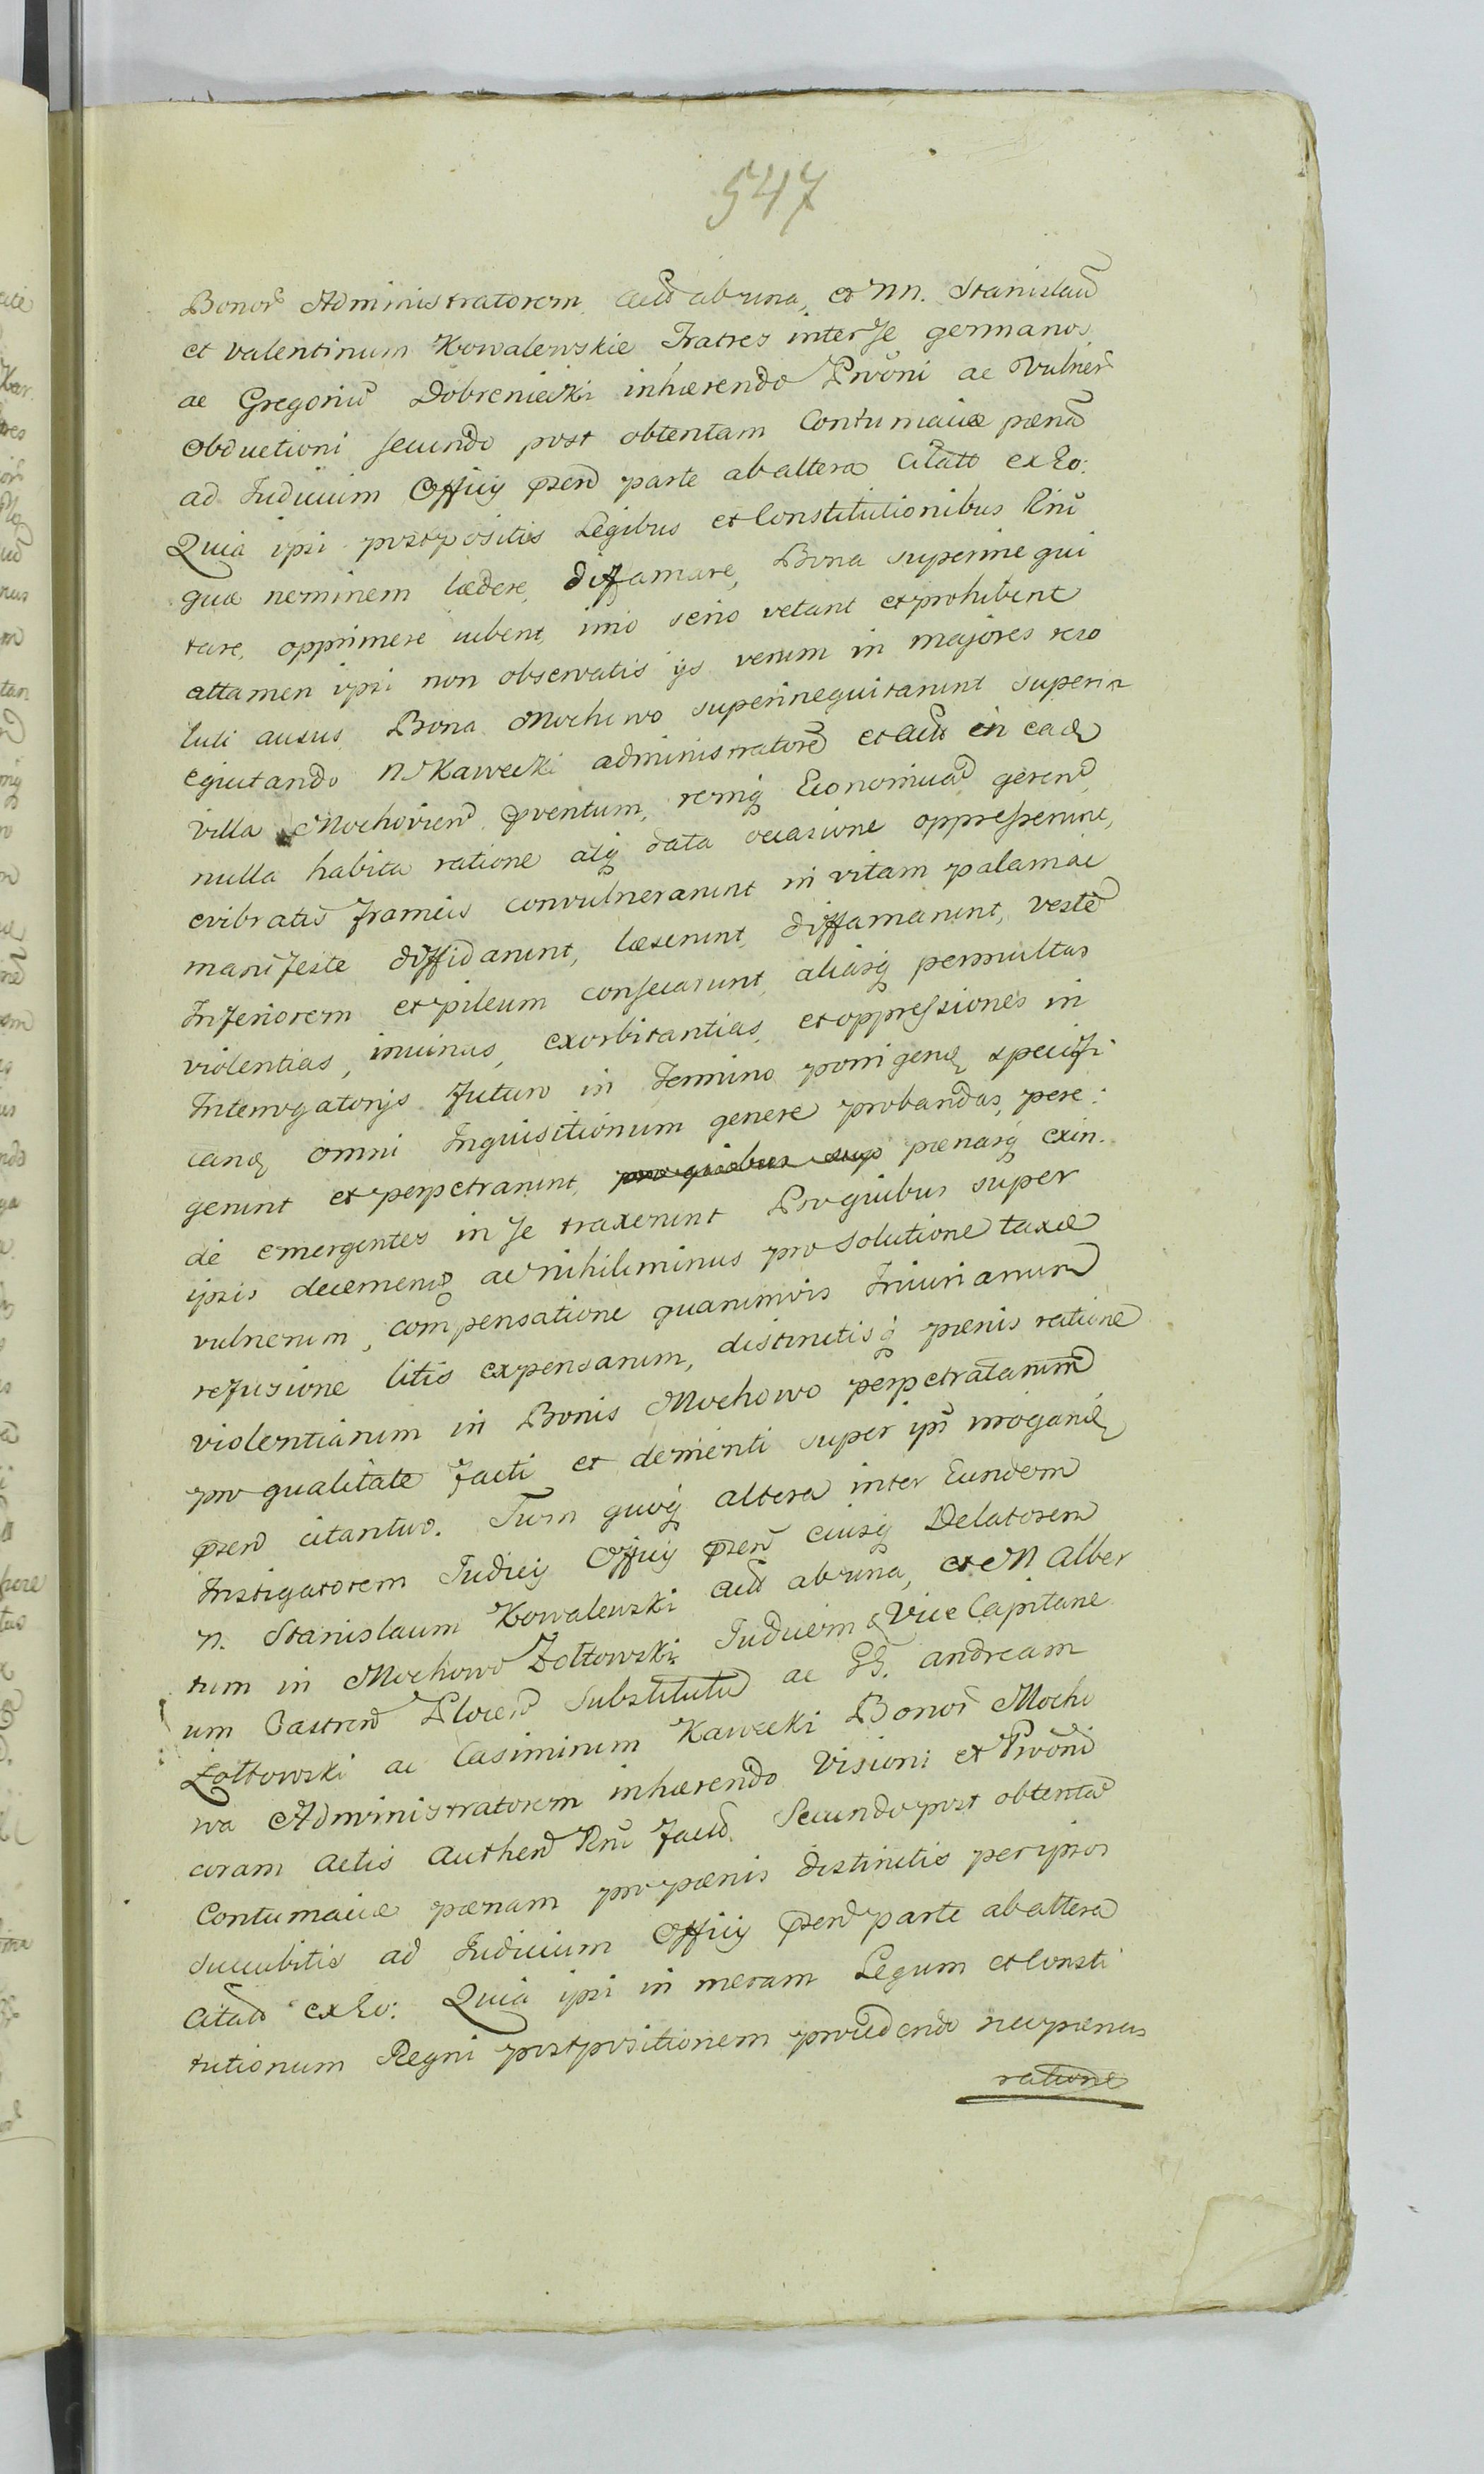 547
Bonor Administratorem, actt ab una, et NN. Stanislau
et Valentinum Kowalewskie Fratres inter se germanos
ac Gregoriu Dobreniecki inhærendo Prwoni ac Vulner
Obductioni secundo post obtentam Contumaciæ pœna
ad Judicium Officy præsen parte ab altera Citatt ex Eo:
Quia ipsi postpositis Legibus et Constitutionibus Rni
quæ neminem lædere, diffamare, Bona superinequi
tare, opprimere iubent, imò seriò vetant et prohibent
attamen ipsi non observatis ijs verum in majores reso
luti ausus Bona Mochowo superinequitarunt superin
equitando N Kawecki administratore et actt in ead
villa Mochovien proventum, remq Economica geren
nulla habita ratione alq data occasione oppresserunt,
evibratis frameis convulnerarunt in vitam palam ac
manifeste diffidarunt, læserunt, diffamarunt, veste
Inferiorem et pileum consecarunt, aliasq permultas
violentias, iniurias, exorbitantias, et oppressiones in
Interrogatorijs futuro in Termino porrigen specifi
can omni Inquisitionum genere probandas, pere:
gerunt et perpetrarunt, pro quibus sup pœnasq exin
de emergentes in se traxerunt Pro quibus super
ipsis decernen ac nihilominus pro solutione taxæ
vulnerum, compensatione quarumvis Iniuriarum
refusione litis expensarum, distinctisq pœnis ratione
violentiarum in Bonis Mochowo perpetratarum
pro qualitate facti et demeriti super ips irrogan
præsen citantur. Tum quoq altera inter Eundem
Instigatorem Judicij Officy præsen eiusq Delatorem
N. Stanislaum Kowalewski actt ab una, et M Alber
tum in Mochowo Zołtowski Judicem & Vice Capitane
um Castren Plocen Substitutu ac GG. Andream
Zołtowski ac Casimirum Kawecki Bonor Mocho
wa Administratorem inhærendo Visioni et Prwoni
coram Actis Authen Rni fact. Secundo post obtenta
Contumaciæ pœnam pro pœnis distinctis per ipsos
succubitis ad Judicium Officy præsen parte ab altera
Citatt ex Eo: Quia ipsi in meram Legum et Consti
tutionum Regni postpositionem procedendo nec pœnas
ratione